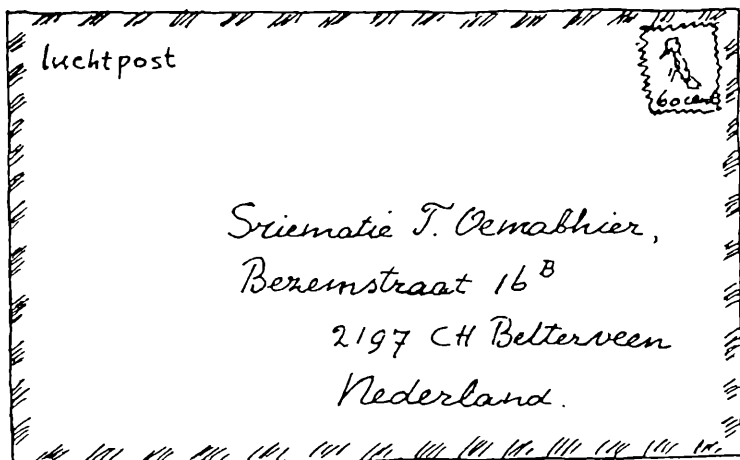 luchtpost
60 cent
Sriematie T. Oemabhier,
Bezemstraat 16 B
2197 CH Belterveen
Nederland.